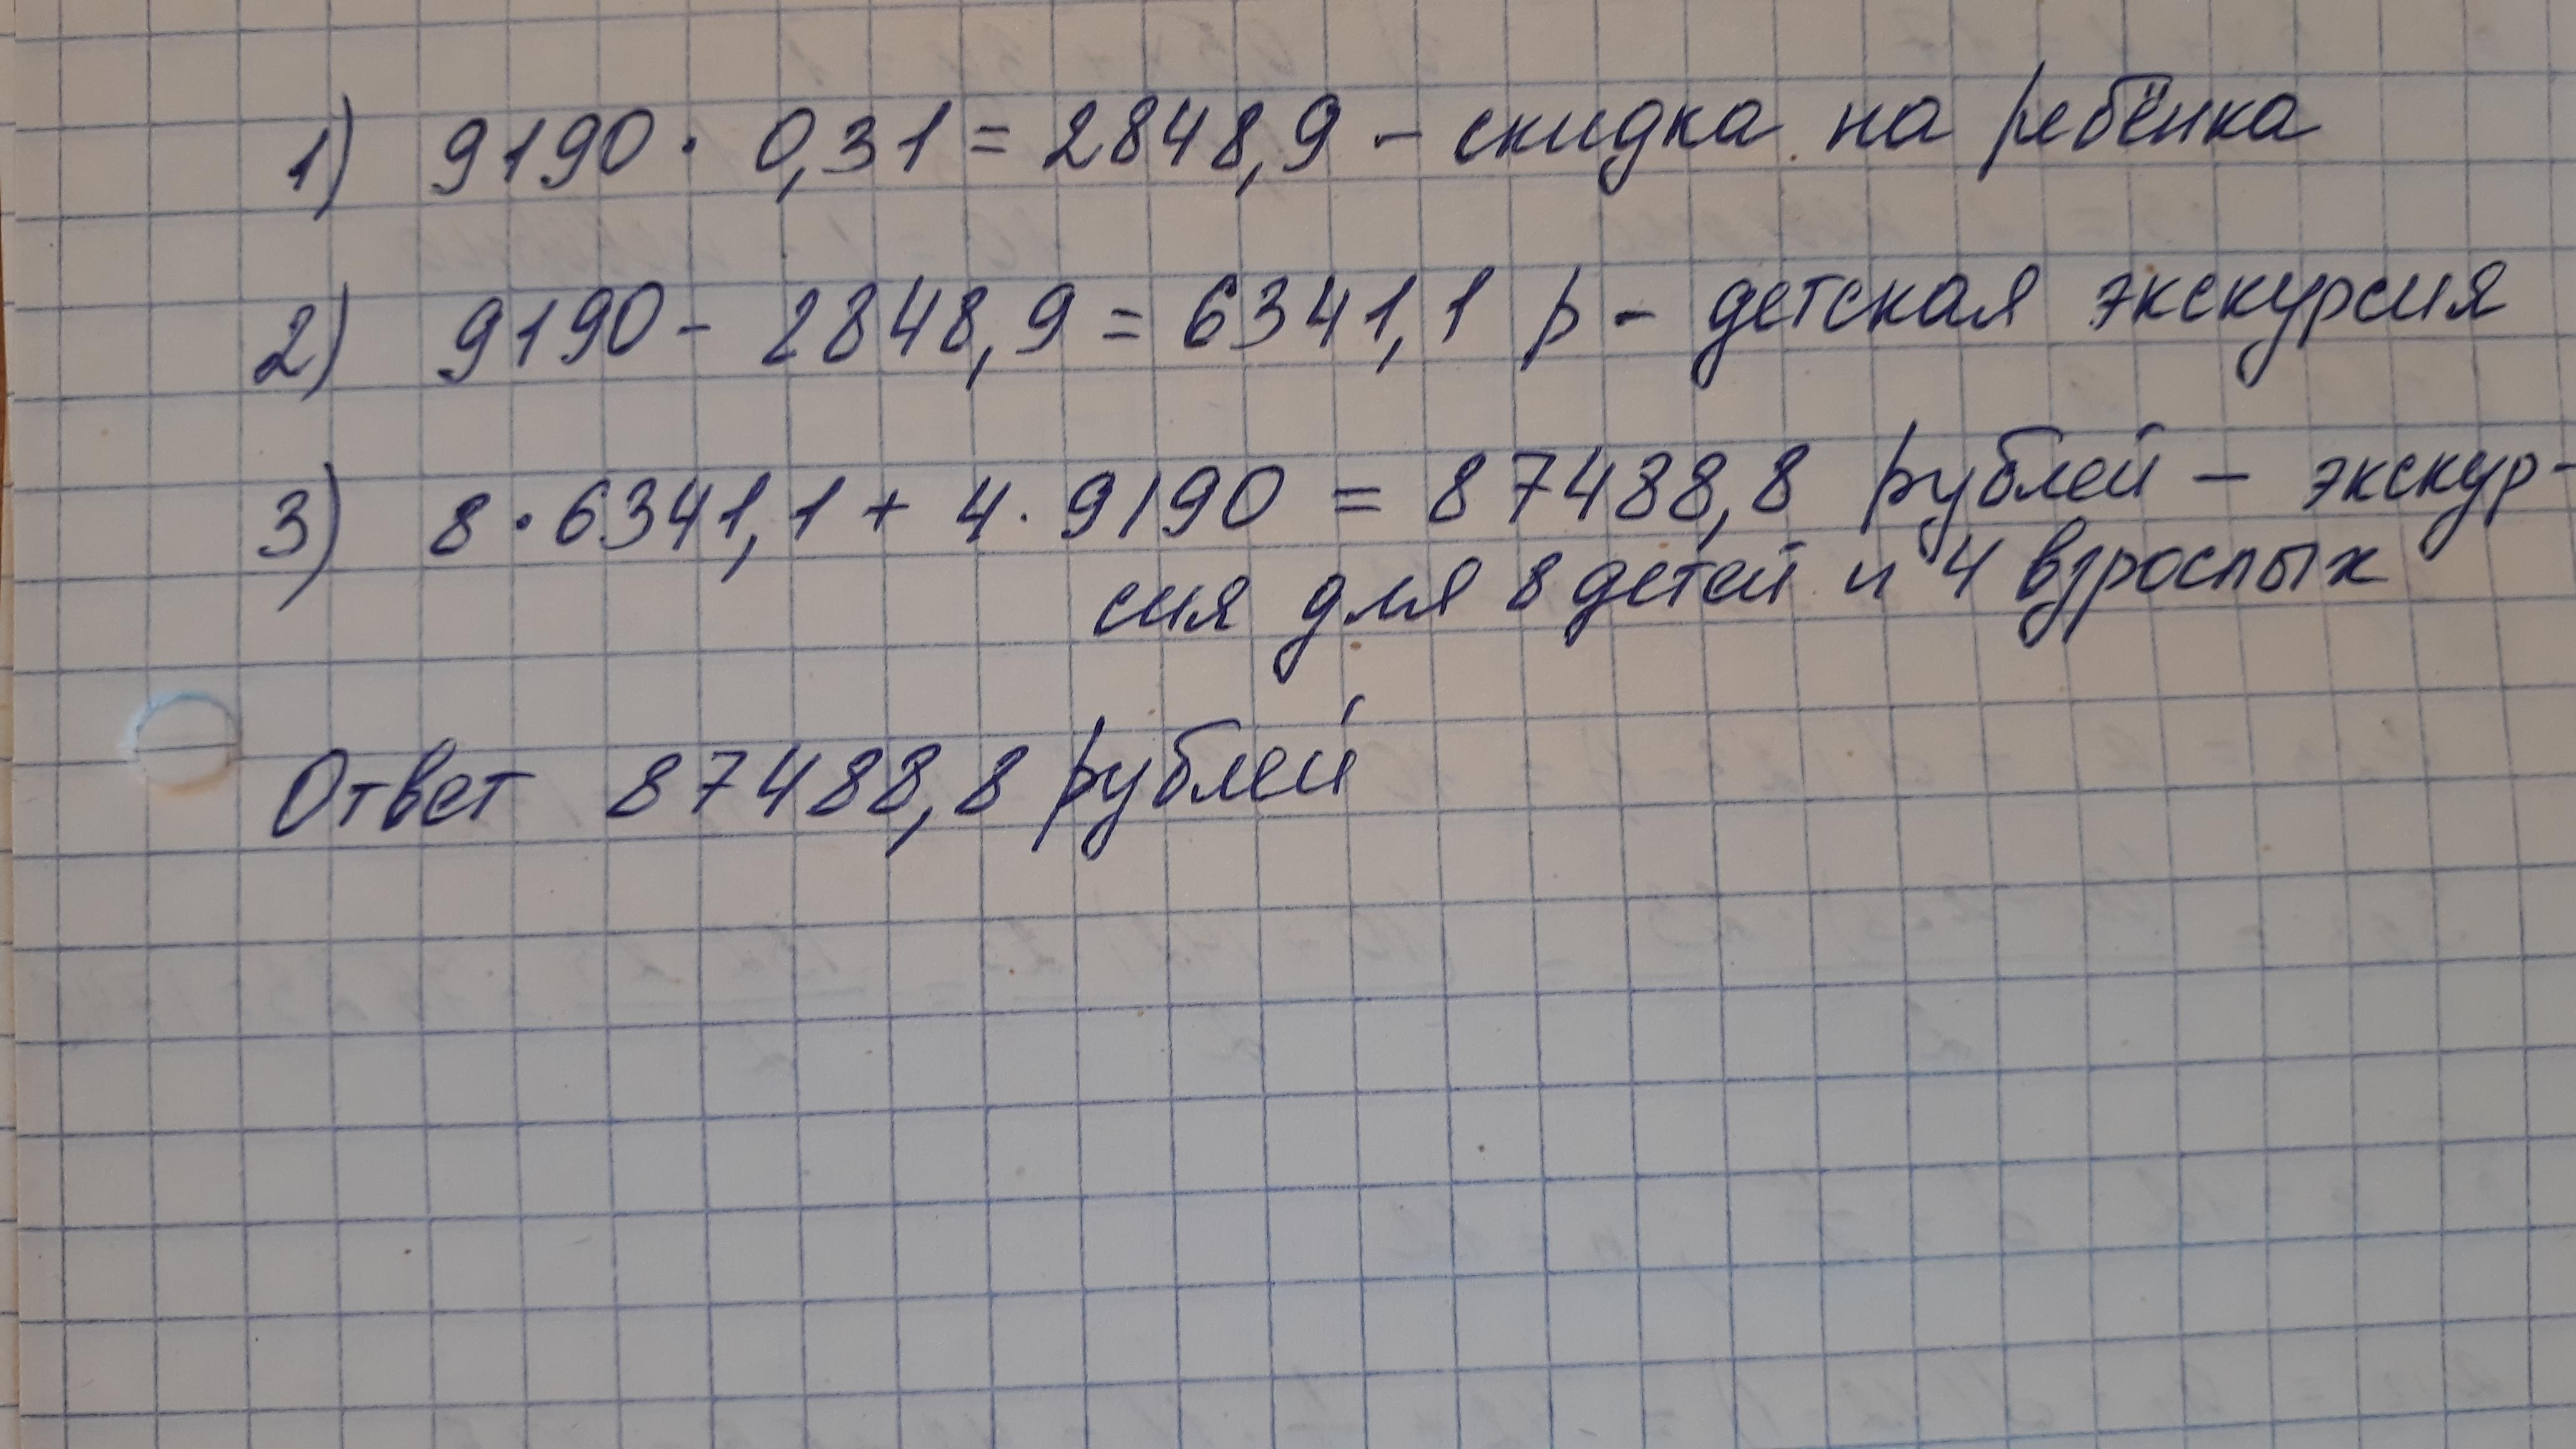 1) 9190 · 0,31 = 2848,9 – скидка на ребёнка
2) 9190 – 2848,9 = 6341,1 р – детская экскурсия
3) 8 · 6341,1 + 4 · 9190 = 87488,8 рублей – экскур-
сия для 8 детей и 4 взрослых
Ответ 87488,8 рублей